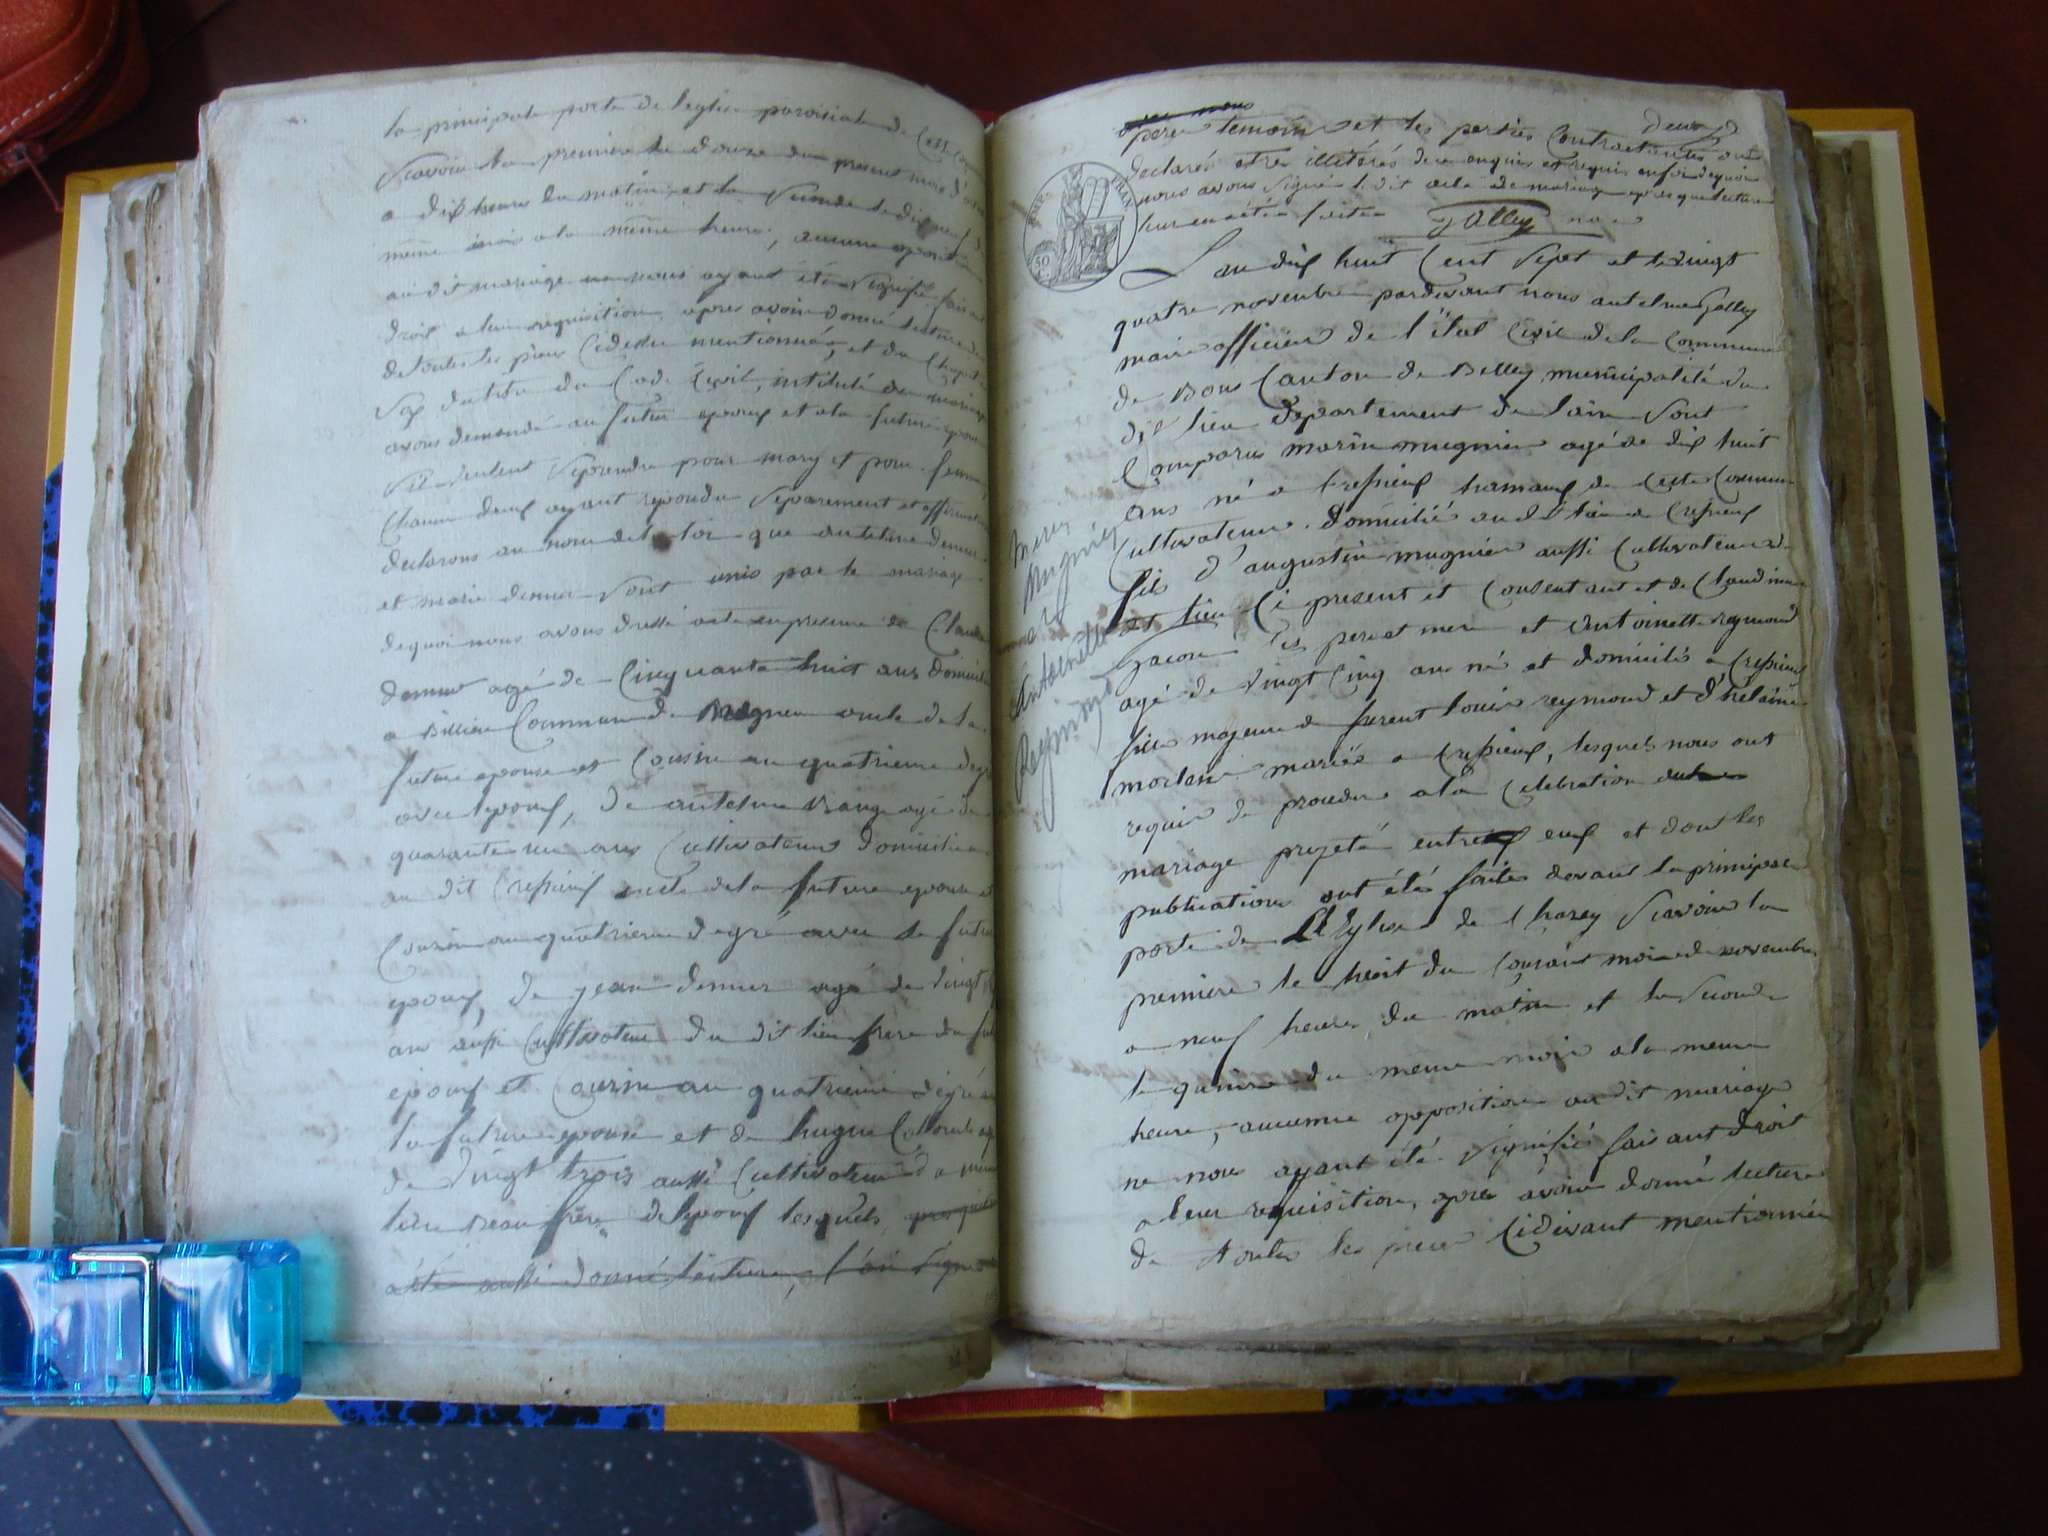 la principale porte de leglise paroisiale de
scavoir la premiere le douze du present mois
a dix heures du matin, et la seconde le dix neuf
même mois a la même heure, aucune opposition
au dit mariage ne nous ayant été signifié faisant
droit a leur requisition, apres avoir donné lecture
de toutes les pieces cidessu mentionnées, et du chapitre
six du titre du Code Civil, intitulé du mariage
avons demandé au futur epoux et a la future epouse
s'il veulent se prendre pour mary et pour femme
chacun deux ayant repondu separement et affirmativement
declarons au nom de la loi que antelme
et marie sont unis par le mariage
dequoi nous avons dressé acte en presence de Claude
agé de cinquante huit ans domicilié
a Billieu Commune de Magneu oncle de la
future epouse et cousin au quatrieme degré
avec lepoux, de antelme agé de
quarante un ans Cultivateur domicilié
au dit Crepieux oncle de la future epouse et
Cousin au quatrieme degré avec le futur
epoux, de jean agé de vingt
ans aussi Cultivateur du dit lieu frere du futur
epoux et cousin au quatrieme dégré
la future epouse et de hugue
de vingt trois aussi Cultivateur
lieu Beau frere de lepoux lesquels
été aussi donné lecture, l'on signé
temoins et les parties Contractantes ont
declarés etres illitérés de ce enquis et requis enfoi dequoi
nous avons signé le dit acte de mariage apres que lecture
leur en a été faite Jalley
Lan dix huit Cent sept et le vingt
quatre novembre pardevant nous antelme Jalley
maire officier de l'état Civil de la Commune
de Bons Canton de Belley municipalité du
dit lieu departement de lain sont
Comparus marin mugnier agé de dix huit
ans né a Crepieux hamaux de cette Commune
Cultivateur domicilié au dit lieu de Crepieux
fils d'augustin mugnier aussi Cultivateur
dit lieu ci present et consentant et de Claudine
ses pere et mere et antoinette reymond
agé de vingt Cinq ans né et domicilés a Crepieux
fille majeure de furent louis reymond et d'
mariés a Crepieux, lesquels nous ont
requis de proceder a la Celebration
mariage projeté entre eux et dont les
publications ont étés faites devant la principale
porte de L'Eglise de Chazey scavoir la
premiere le heuit du courant mois de novembre
a neuf heures du matin et la seconde
le quinze du meme mois a la meme
heure, aucunne opposition au dit mariage
ne nous ayant été signifié faisant droit
a leur requisition, apres avoir donné lecture
de toutes les pieces Cidevant mentionnée
Mugnier
Antoinette
Reymond